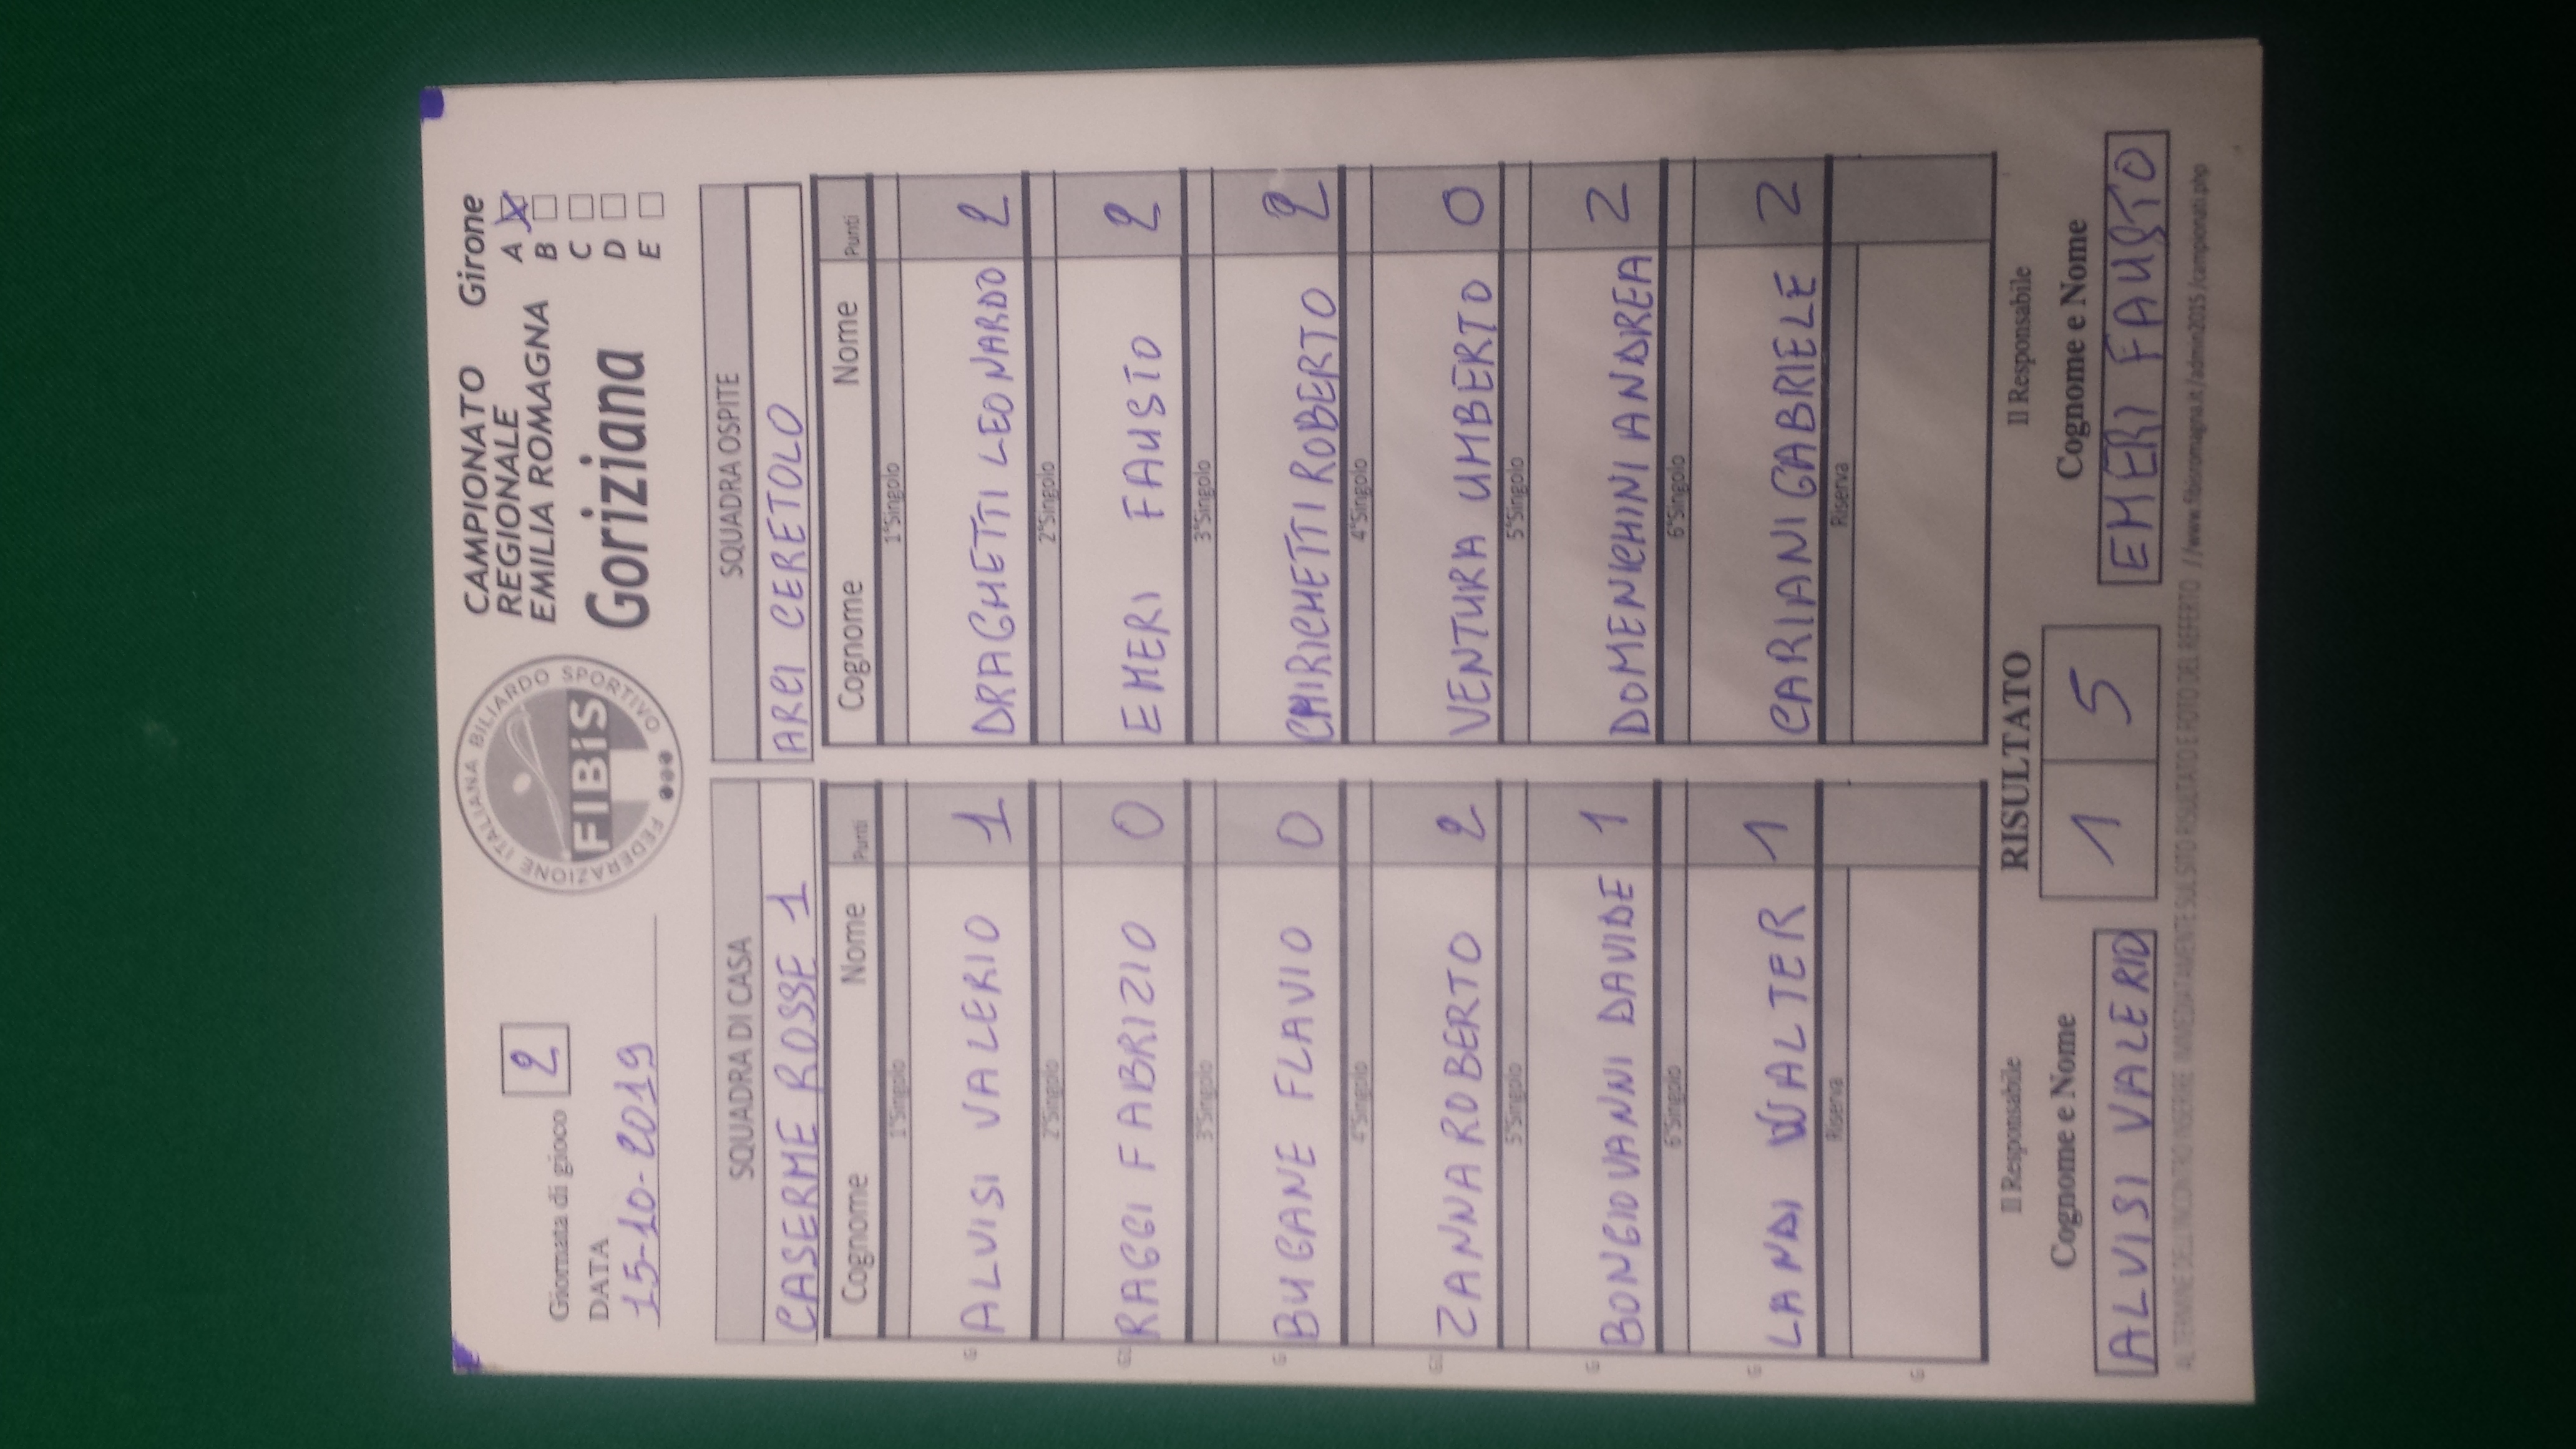 Giornata di gioco 2
DATA
15-10-2019
FEDERAZIONE ITALIANA BILIARDO SPORTIVO
FIBiS
CAMPIONATO
REGIONALE
EMILIA ROMAGNA
Goriziana
Girone
A X
B
C
D
E
SQUADRA DI CASA SQUADRA OSPITE
CASERME ROSSE 1 ARCI CERETOLO
Cognome Nome Punti Cognome Nome Punti
1°Singolo 1°Singolo
G ALVISI VALERIO 1 DRAGHETTI LEONARDO 2
2°Singolo 2°Singolo
RAGGI FABRIZIO 0 EMERI FAUSTO 2
3°Singolo 3°Singolo
G BUGANE FLAVIO 0 CHIRICHETTI ROBERTO 2
4°Singolo 4°Singolo
ZANNA ROBERTO 2 VENTURA UMBERTO 0
5°Singolo 5°Singolo
G BONGIOVANNI DAVIDE 1 DOMENICHINI ANDREA 2
6°Singolo 6°Singolo
G LANDI WALTER 1 CARIANI GABRIELE 2
Riserva Riserva
G
Il Responsabile RISULTATO Il Responsabile
Cognome e Nome 1 5 Cognome e Nome
ALVISI VALERIO EMERI FAUSTO
AL TERMINE DELL'INCONTRO INSERIRE IMMEDIATAMENTE SUL SITO RISULTATO E FOTO DEL REFERTO //www.fibisromagna.it/admin2015/campionati.php